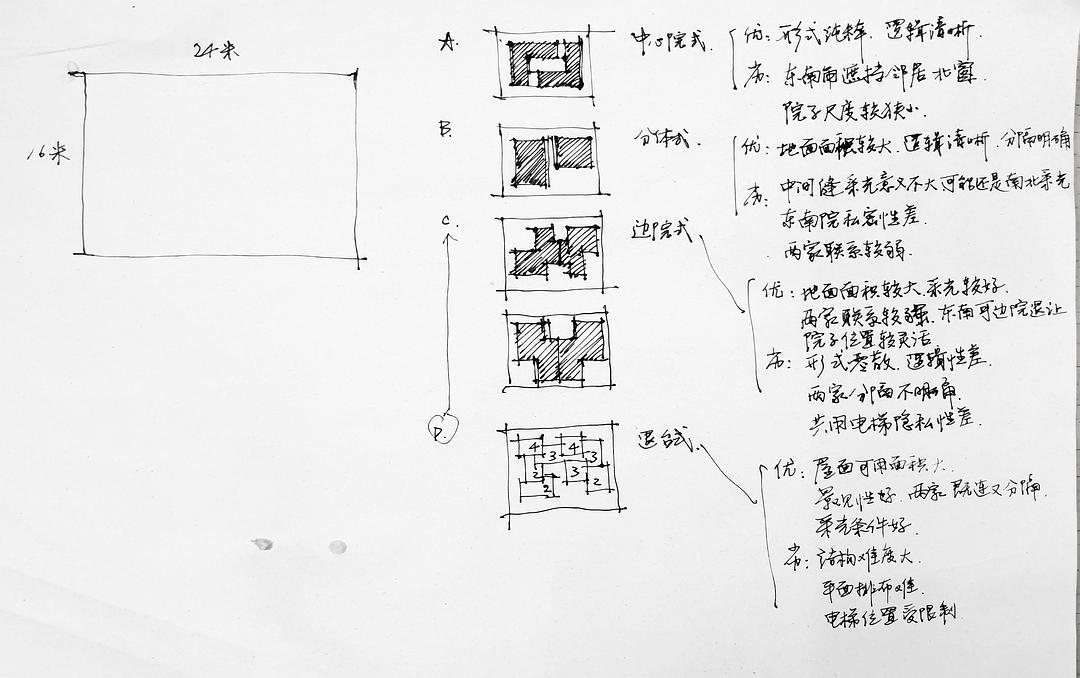 24米
16米
A.
中心院式.
优: 形式纯粹. 逻辑清晰.
劣: 东南角遮挡邻居北窗.
院子尺度较狭小.
B.
分体式.
优: 地面面积较大. 逻辑清晰. 分隔明确
劣: 中间缝采光意义不大可能还是南北采光
东南院私密性差.
两家联系较弱.
C.
边院式
优: 地面面积较大. 采光较好.
两家联系较强. 东南可边院退让
院子位置较灵活
劣: 形式零散. 逻辑性差.
两家分隔不明确.
共用电梯隐私性差.
D.
4 3 4 3
2 3 2
2
退台式.
优: 屋面可用面积大.
景观性好. 两家既连又分隔.
采光条件好.
劣: 结构难度大.
平面排布难.
电梯位置受限制